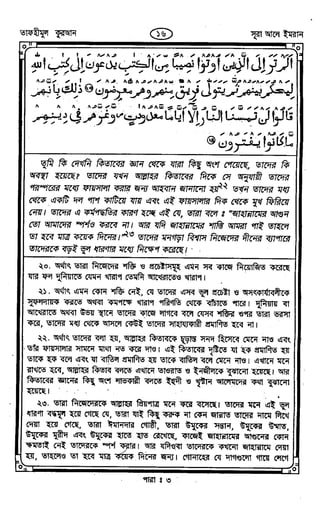 তাফহীমুল কুরআন
১৬
সূরা আলে ইমরান
اَلَمْ تَرَ اِلَى الَّذِيْنَ اُوْتُوْا نَصِيْبًا مِّنَ الْكِتٰبِ يُدْعَوْنَ اِلٰى كِتٰبِ اللّٰهِ
لِيَحْكُمَ بَيْنَهُمْ ثُمَّ يَتَوَلّٰى فَرِيْقٌ مِّنْهُمْ وَهُمْ مُّعْرِضُوْنَ ﴿﴾ ذٰلِكَ بِاَنَّهُمْ
قَالُوْا لَنْ تَمَسَّنَا النَّارُ اِلَّا اَيَّامًا مَّعْدُوْدٰتٍ وَّغَرَّهُمْ فِيْ دِيْنِهِمْ
مَّا كَانُوْا يَفْتَرُوْنَ ﴿﴾
তুমি কি দেখনি কিতাবের জ্ঞান থেকে যারা কিছু অংশ পেয়েছে, তাদের কি
অবস্থা হয়েছে? তাদের যখন আল্লাহর কিতাবের দিকে সে অনুযায়ী তাদের
পরস্পরের মধ্যে ফায়সালা করার জন্য আহবান জানানো হয়২২ তখন তাদের মধ্য
থেকে একটি দল পাশ কাটিয়ে যায় এবং এই ফায়সালার দিক থেকে মুখ ফিরিয়ে
নেয়। তাদের এ কর্মপদ্ধতির কারণ হচ্ছে এই যে, তারা বলে : "জাহান্নামের আগুন
তো আমাদের স্পর্শও করবে না। আর যদি জাহান্নামের শাস্তি আমরা পাই তাহলে
তা হবে মাত্র কয়েক দিনের।"২৩ তাদের মনগড়া বিশ্বাস নিজেদের দীনের ব্যাপারে
তাদেরকে বড়ই ভুল ধারণার মধ্যে নিক্ষেপ করেছে।
২০. অর্থাৎ তারা নিজেদের শক্তি ও প্রচেষ্টাসমূহ এমন সব কাজে নিয়োজিত করেছে
যার ফল দুনিয়াতে যেমন খারাপ তেমনি আখেরাতেও খারাপ।
২১. অর্থাৎ এমন কোন শক্তি নেই, যে তাদের এসব ভুল প্রচেষ্টা ও অসৎকার্যাবলীকে
সুফলদায়ক করতে অথবা কমপক্ষে খারাপ পরিণতি থেকে বাঁচাতে পারে। দুনিয়ায় বা
আখেরাতে অথবা উভয় স্থানে তাদের কাজে লাগবে বলে যেসব শক্তির ওপর তারা ভরসা
করে, তাদের মধ্য থেকে আসলে কেউই তাদের সাহায্যকারী প্রমাণিত হবে না।
২২. অর্থাৎ তাদের বলা হয়, আল্লাহর কিতাবকে চূড়ান্ত সনদ হিসেবে মেনে নাও এবং
তাঁর ফায়সালার সামনে মাথা নত করে দাও। এই কিতাবের দৃষ্টিতে যা হক প্রমাণিত হয়
তাকে হক বলে এবং যা বাতিল প্রমাণিত হয় তাকে বাতিল বলে মেনে নাও। এখানে মনে
রাখতে হবে, আল্লাহর কিতাব বলতে এখানে তাওরাত ও ইনজীলকে বুঝানো হয়েছে। আর
কিতাবের জ্ঞানের কিছু অংশ লাভকারী বলতে ইহুদী ও খৃষ্টান আলেমদের কথা বুঝানো
হয়েছে।
২৩. তারা নিজেদেরকে আল্লাহর প্রিয়পাত্র মনে করে বসেছে। তাদের মনে এই ভুল
ধারণা বদ্ধমূল হয়ে গেছে যে, তারা যাই কিছু করুক না কেন জান্নাত তাদের নামে লিখে
দেয়া হয়ে গেছে, তারা ঈমানদার গোষ্ঠী, তারা উমুকের সন্তান, উমুকের উম্মাত,
উমুকের মুরীদ এবং উমুকের হাতে হাত রেখেছে, কাজেই জাহান্নামের আগুনের কোন
ক্ষমতাই নেই তাদেরকে স্পর্শ করার। আর যদিওবা তাদেরকে কখনো জাহান্নামে দেয়া
হয়, তাহলেও তা হবে মাত্র কয়েক দিনের জন্য। গোনাহের যে দাগগুলো গায়ে লেগে
পারা : ৩